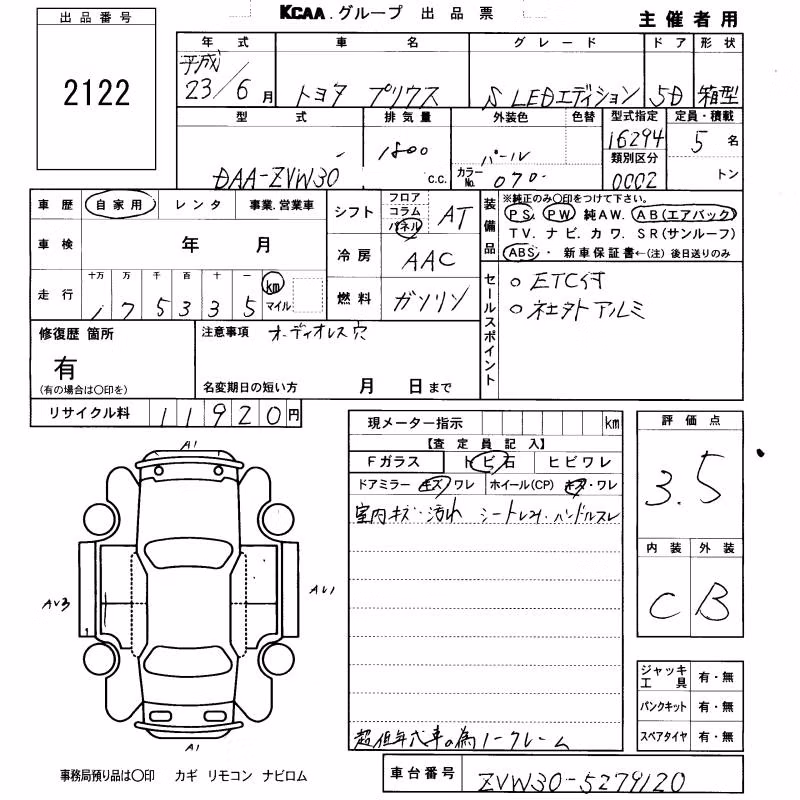 KCAA.グループ 出品票
主催者用
出品番号
2122
年式 車名 グレード ドア 形状
平成 23/6月 トヨタ プリウス S LEDエディション 5D 箱型
型式 排気量 外装色 色替 型式指定 定員・積載
DAA-ZVW30 1800 C.C. パール カラーNo. 070 16294 5名
類別区分
0002 トン
車歴 自家用 レンタ 事業.営業車
車検 年 月
走行 十万 万 千 百 十 一 km マイル
175335
シフト フロア コラム パネル AT
冷房 AAC
燃料 ガソリン
装備品 ※純正のみ○印をつけて下さい。
PS. PW 純AW. AB(エアバッグ)
TV. ナビ. カワ. SR(サンルーフ)
ABS. 新車保証書←(注)後日送りのみ
セールスポイント
○ ETC付
○ 社外アルミ
修復歴 箇所
有
(有の場合は○印を)
注意事項 オーディオレス穴
名変期日の短い方 月 日まで
リサイクル料 11920円
現メーター指示 km
【査定員記入】
Fガラス トビ石 ヒビワレ
ドアミラー キズ ワレ ホイール(CP) キズ・ワレ
室内キズ・汚れ シートレス・ハンドルスレ
超低年式車の為ノークレーム
評価点
3.5
内装 外装
C B
A1
AU3
AU1
A1
ジャッキ工具 有・無
パンクキット 有・無
スペアタイヤ 有・無
事務局預り品は○印 カギ リモコン ナビロム
車台番号 ZVW30-5279120